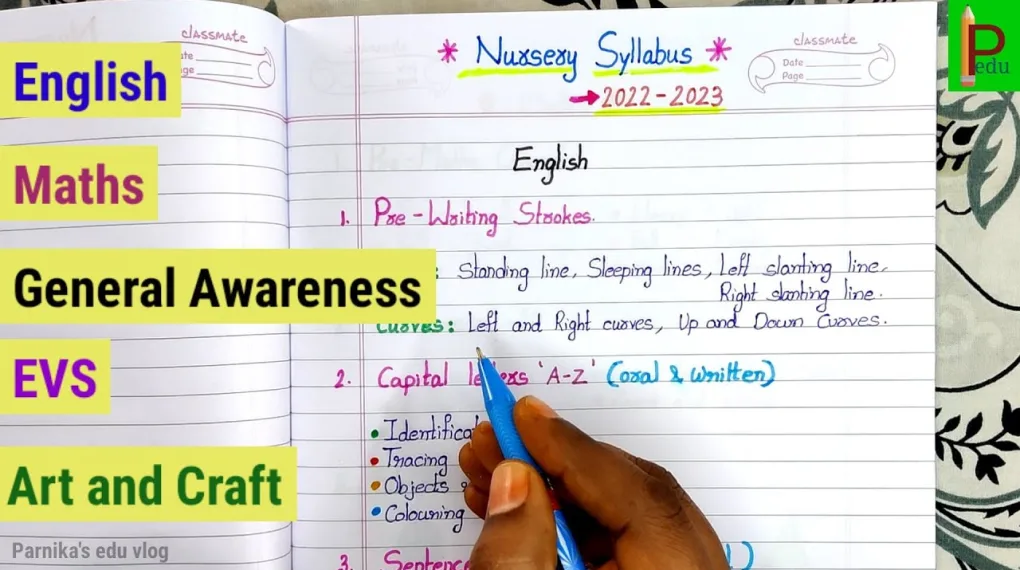 English
Maths
General Awareness
EVS
Art and Craft
Parnika's edu vlog
P
edu
classmate
classmate
Date
Page
* Nursery Syllabus *
→ 2022-2023
English
1. Pre-Writing Strokes.
: Standing line, Sleeping lines, Left slanting line,
Right slanting line.
Curves: Left and Right curves, Up and Down Curves.
2. Capital letters 'A-Z' (oral & Written)
• Identificat
• Tracing
• Objects
• Colouring
3. Sentence